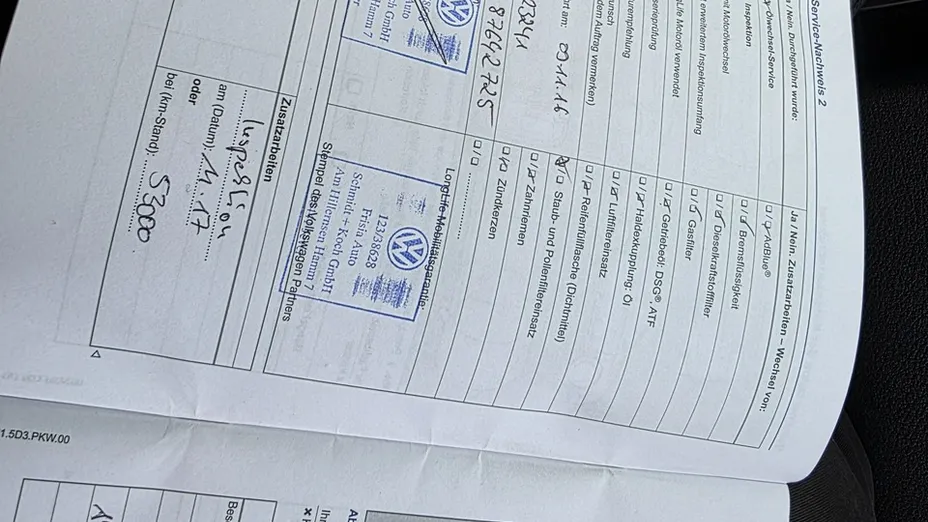 Service-Nachweis 2
Ja / Nein. Zusatzarbeiten – Wechsel von:
/ Nein. Durchgeführt wurde:
AdBlue®
Ölwechsel-Service
Bremsflüssigkeit
Inspektion
Dieselkraftstofffilter
it Motorölwechsel
Gasfilter
t erweitertem Inspektionsumfang
Getriebeöl: DSG®, ATF
gLife Motoröl verwendet
Haldexkupplung: Öl
serieprüfung
Luftfiltereinsatz
urempfehlung
Reifenfüllflasche (Dichtmittel)
unsch
dem Auftrag vermerken)
Staub- und Pollenfiltereinsatz
ort am: 09.11.16
Zahnriemen
Zündkerzen
87642725
LongLife Mobilitätsgarantie:
123/38628
Frisia Auto
Schmidt + Koch GmbH
Am Hillernsen Hamm 7
Stempel des Volkswagen Partners
Auto
ch GmbH
Hamm 7
Zusatzarbeiten
Inspektion
am (Datum): 11.17
oder
bei (km-Stand): 53000
1.5D3.PKW.00
Bes